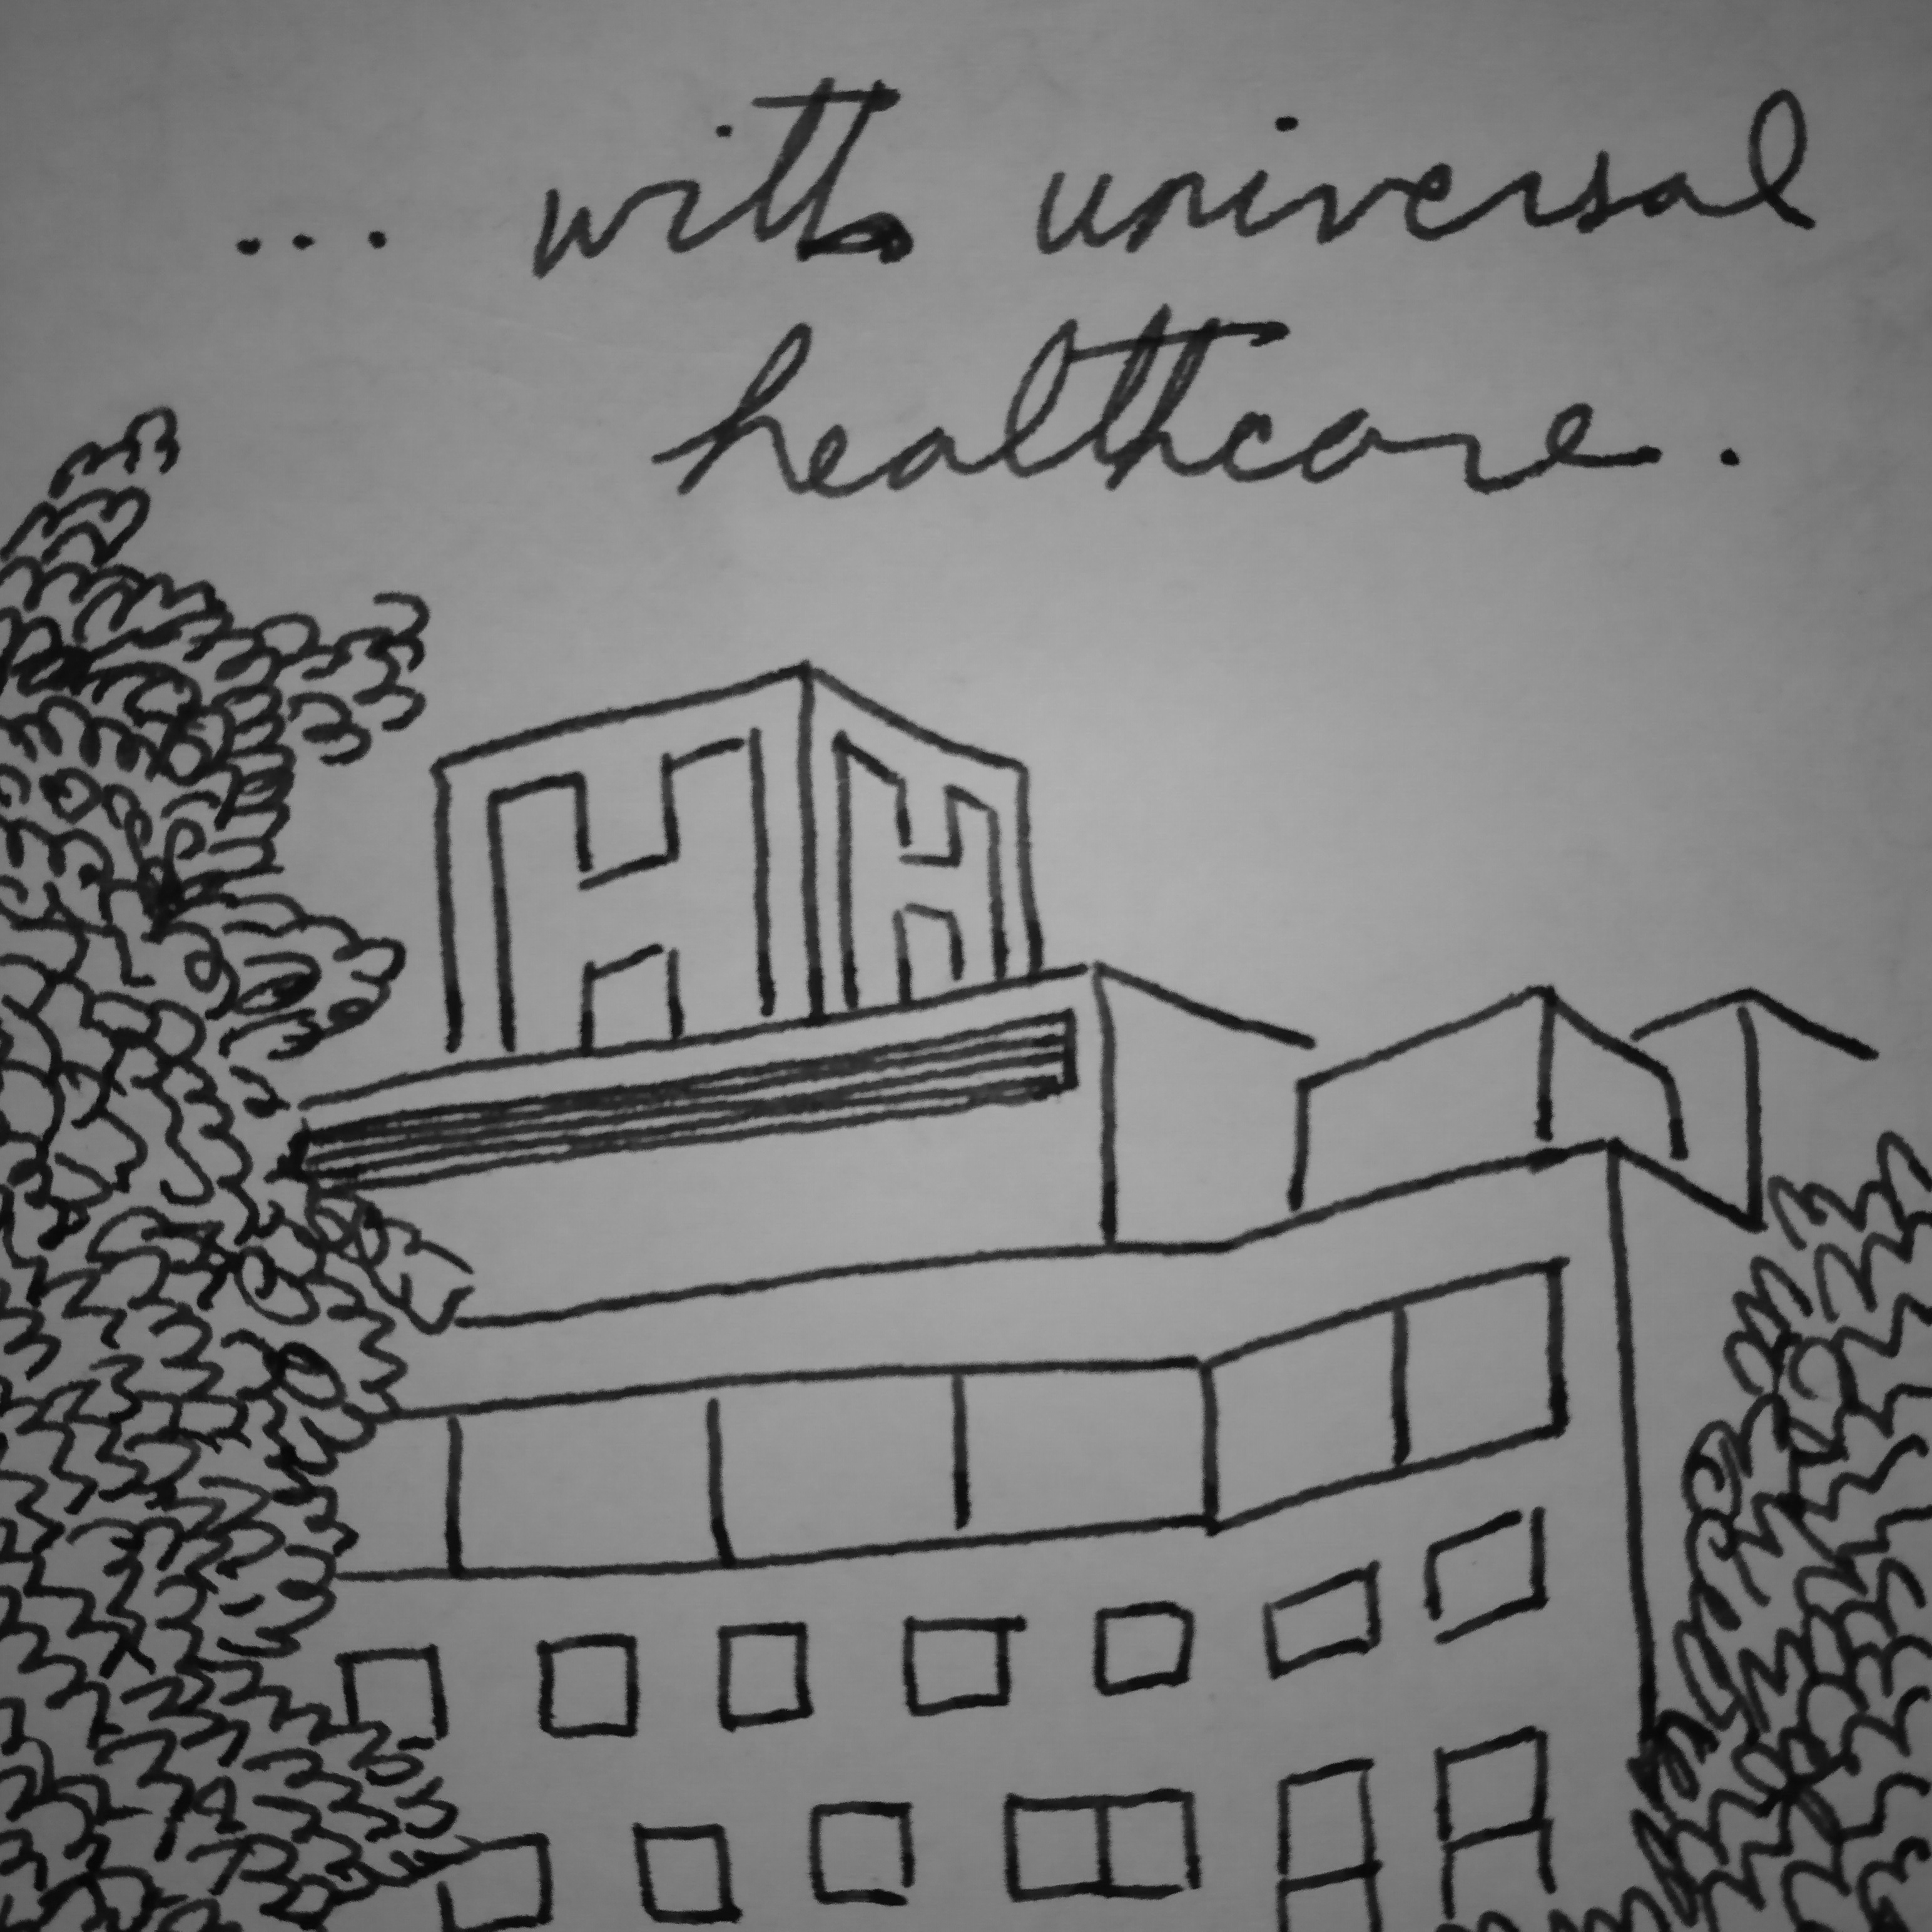 ... with universal
healthcare.
H H